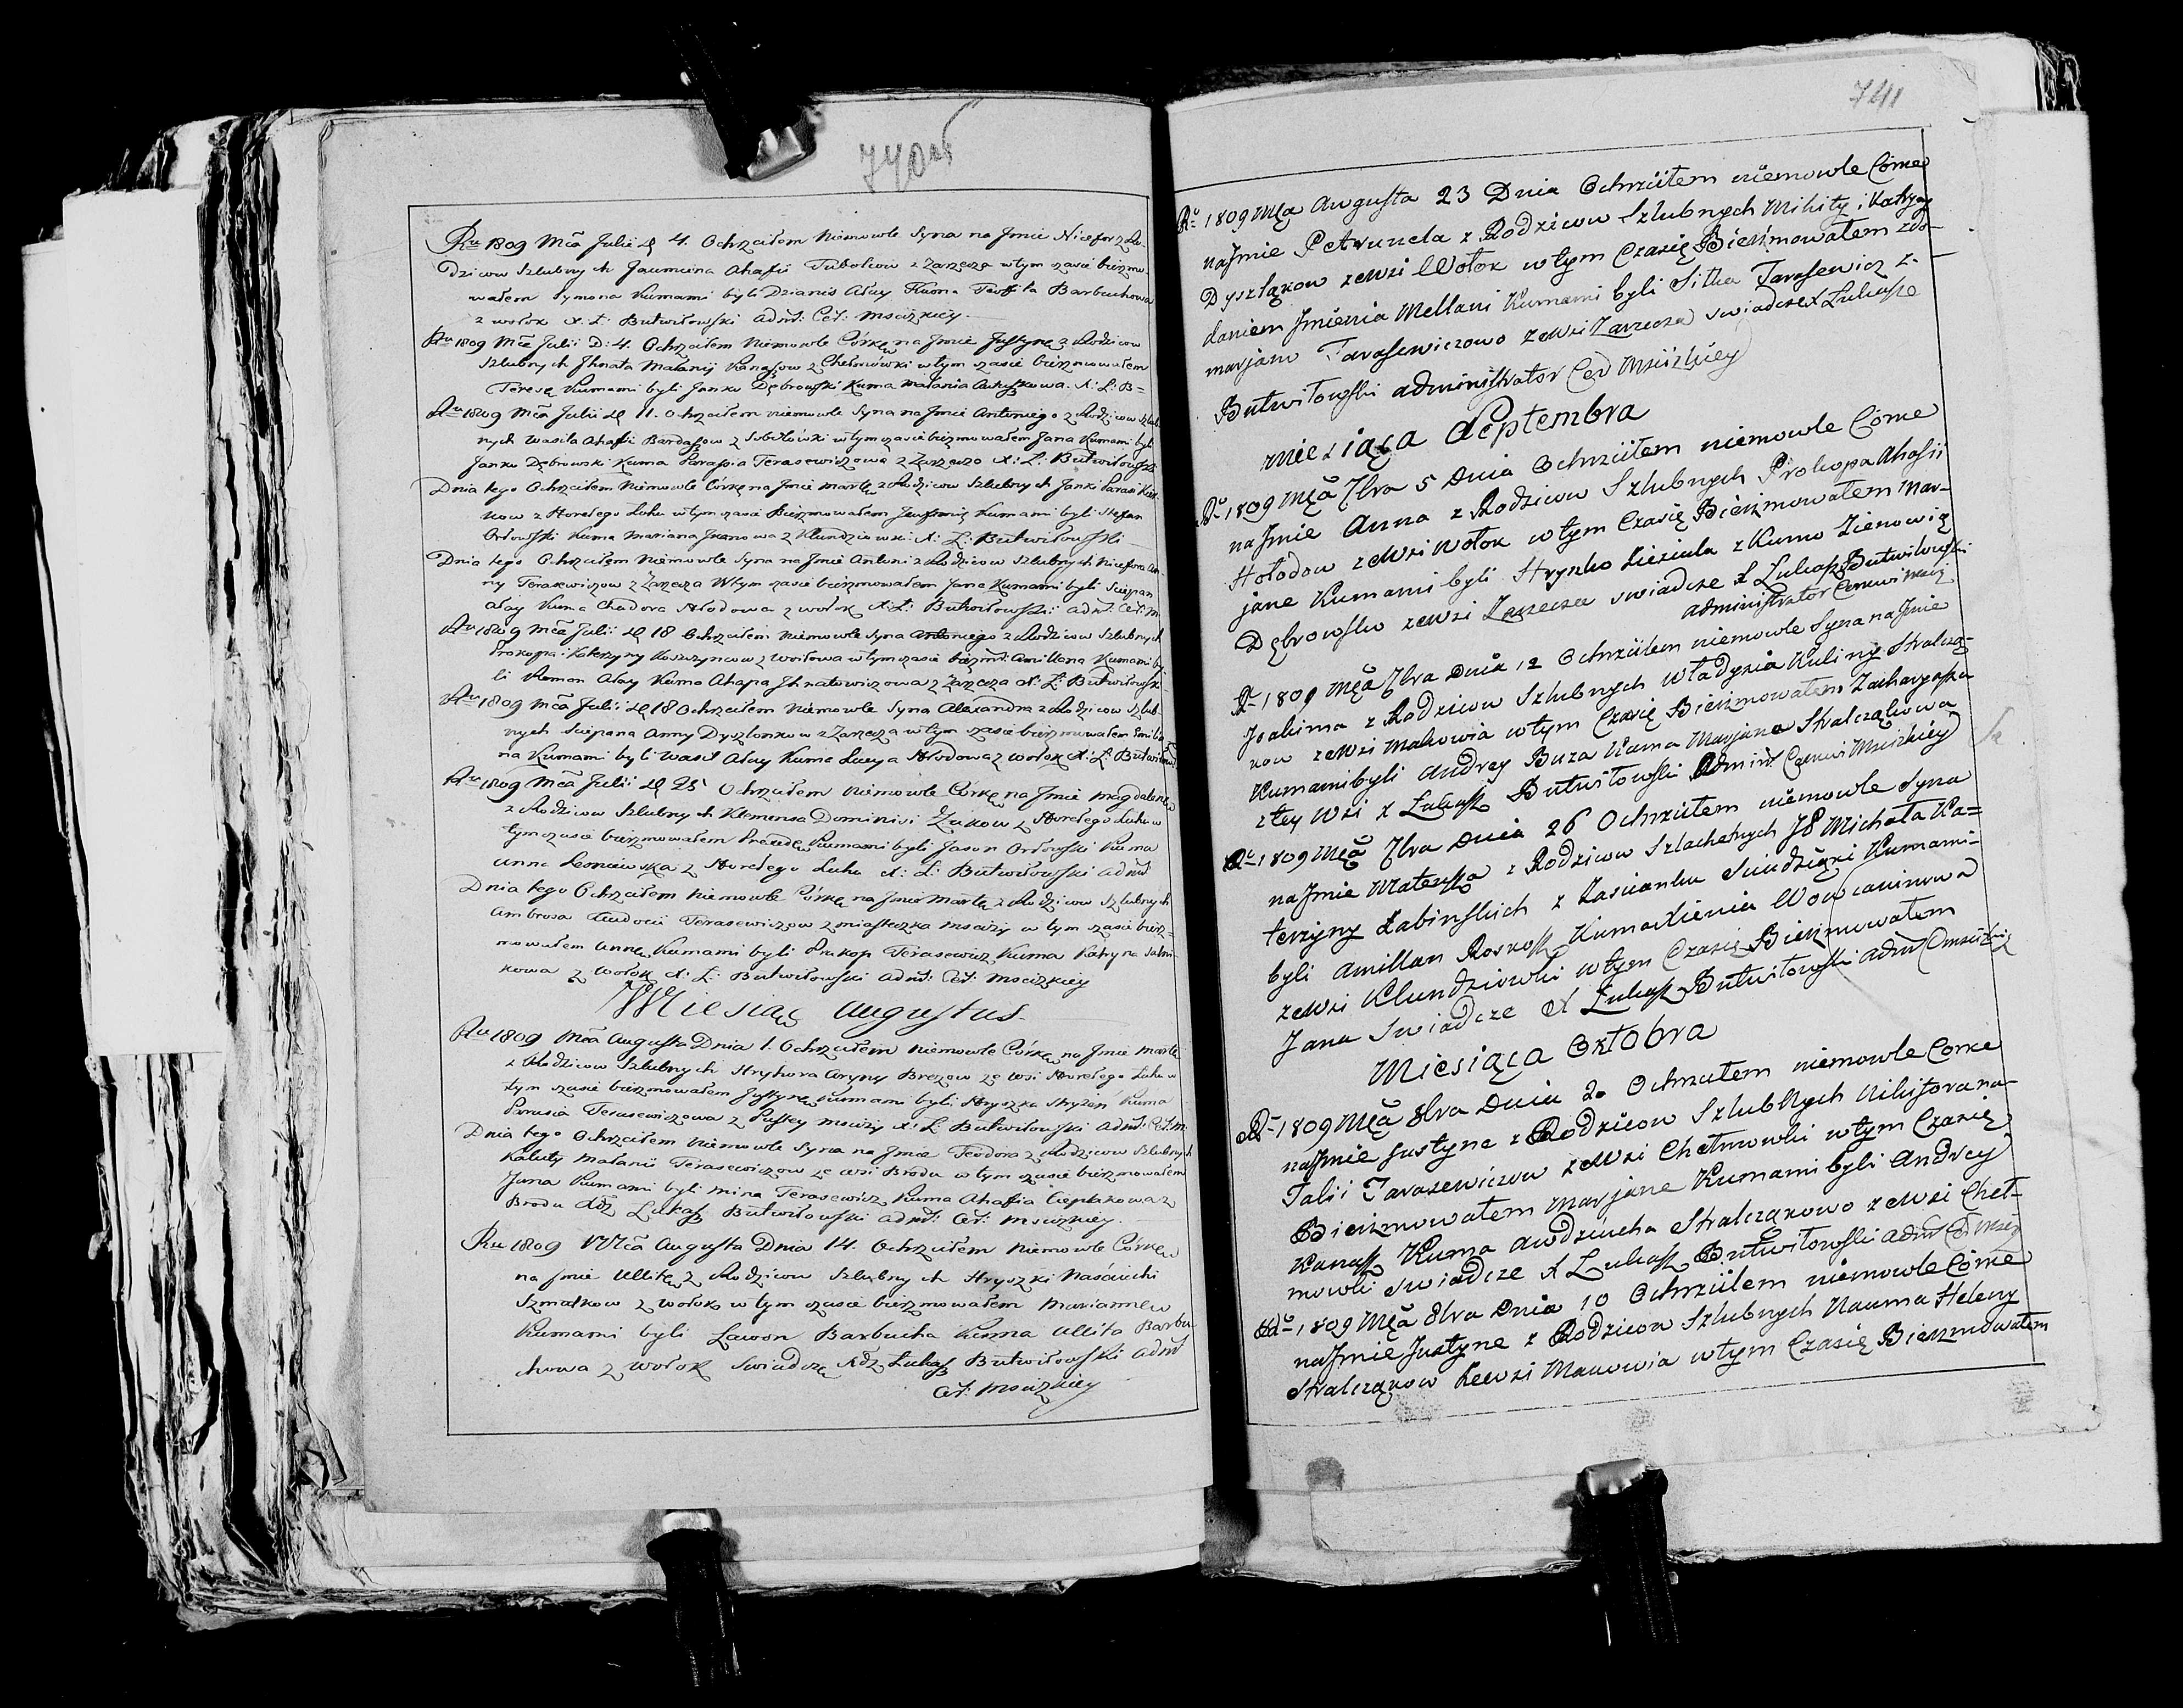 740об
Ru 1809 Mca Julii d 4. Ochrzciłem Niemowle Syna na Jmie Nicefor z Ro-
dzicow Szlubnych Jaumena Ahafii Tubolcow z Zarzecza w tym czasie bierzmo-
wałem Symona Kumami byli Dzianis Ałay Kuma Teofila Barbuchowa
z wołok X: Ł: Butwiłowski Admi: Cer: Mscizkiey.
Ru 1809 Mca Julii D: 4. Ochrzciłem Niemowle Córkę na Jmie Justynę z Rodzicow
Szlubnych Jhnata Małanij Kanaszow z Chełmówki w tym czasie bierzmowałem
Teresę Kumami byli Janko Dębrowski Kuma Małania X: Ł: B=
Ru 1809 Mca Julii d 11. Ochrzciłem niemowle Syna na Jmie Antoniego z Rodzicow Szlub-
nych Wasila Ahafii Bardaszow z Sobotówki w tym czasie bierzmowałem Jana Kumami byli
Janko Dębrowski Kuma Parasia Terasewiczowa z Zarzecza X: Ł: Butwiłowski
Dnia tego Ochrzciłem Niemowle Córkę na Jmie Martę z Rodzicow Szlubnych Janki Parasi
kow z Horełego Łuhu w tym czasie Bierzmowałem Kumami byli Stefan
Orłowski Kuma Mariana z Kłundziowki X: Ł: Butwiłowski
Dnia tego Ochrzciłem Niemowle Syna na Jmie Antoni z Rodzicow Szlubnych Nicefora An-
ny Terasewiczow z Zarzecza W tym czasie bierzmowałem Jana Kumami byli Sciepan
Ałay Kuma Chodora Hłodowa z wołok X: Ł: Butwiłowski Admi: Cer: M
Ru 1809 Mca Julii d 18 Ochrzciłem Niemowle Syna Antoniego z Rodzicow Szlubnych
Prokopa i Katerzyny w tym czasie bierzm: Amillana Kumami by-
li Roman Ałay Kuma Ahapa Jhnatowiczowa z Zarzecza X: Ł: Butwiłowsk
Ru 1809 Mca Julii d 18 Ochrzciłem Niemowle Syna Alexandra z Rodzicow Szlub-
nych Sciepana Anny Dyszlonkow z Zarzecza w tym czasie bierzmowałem Emilia
na Kumami byli Wasil Ałay Kuma Łucya Hłodowa z wołok X: Ł: Butwiłowsk
Ru 1809 Mca Julii d 25 Ochrzciłem Niemowle Córkę na Jmie Magdalenę
z Rodzicow Szlubnych Klemensa Dominisi Żukow z Horełego Łuhu w
tym czasie bierzmowałem Praxedę Kumami byli Jason Orłowski Kuma
Anna Leoniewska z Horełego Łuhu X: Ł: Butwiłowski Admi
Dnia tego Ochrzciłem Niemowle Córkę na Jmie Martę z Rodzicow Szlubnych
Ambrosa Eudocii Terasewiczow z miasteczka Msciży w tym czasie bierz-
mowałem Annę Kumami byli Prakop Terasewicz Kuma Katryna Salni-
kowa z Wołok X: Ł: Butwiłowski Admi: Cer: Mscizkiey
Miesiąc Augustus
Ru 1809 Mca Augusta Dnia 1. Ochrzciłem Niemowle Córkę na Jmie Marta
z Rodzicow Szlubnych Hryhora Aryny Brezow ze wsi Horełego Łuhu w
tym czasie bierzmowałem Justynę Kumami byli Hryszka Kuma
Parasia Terasewiczowa z Pustey Mscizy X: Ł: Butwiłowski Admi: Cer: M
Dnia tego Ochrzciłem Niemowle Syna na Jmie Teodora z Rodzicow Szlubnych
Kaluty Małanii Terasewiczow ze wsi Brodu w tym czasie bierzmowałem
Jana Kumami byli Mina Terasewicz Kuma Ahafia Cieplakowa z
Brodu Xdz Łukasz Butwiłowski Admi: Cer: Mscizkiey.
Ru 1809 Mca Augusta Dnia 14. Ochrzciłem Niemowle Córkę
na Jmie Ullitę z Rodzicow Szlubnych Hryszki Naściechi
Szmatkow z wołok w tym czasie bierzmowałem Mariannę
Kumami byli Ławon Barbucha Kuma Ullita Barbu
chowa z wołok Swiadczę Xdz Łukasz Butwiłowski Admi
Cer: Mscizkiey
741
Ru 1809 Mca Augusta 23 Dnia Ochrzciłem niemowle Corke
na Jmie Petrunela z Rodzicow Szlubnych Mikity i Katryny
Dyszląkow ze Wsi Wołok w tym Czasię Bierzmowałem zdo-
daniem Jmienia Mellani Kumami byli Sitka Tarasewicz z
marjano Tarasewiczowo ze Wsi Zarzecza swiadcze X Lukasz
Butwiłowski administrator Cer Mscizkiey
miesiąca Septembra
Ru 1809 Mca 7bra 5 Dnia Ochrzciłem niemowle Corke
na Jmie Anna z Rodzicow Szlubnych Prokopa Ahafii
Hołodow ze Wsi Wołok w tym Czasię Bierzmowałem Mar-
jane Kumami byli Hrynko z Kumo Zienowią
Dębrowsko ze Wsi Zarzecza swiadcze X Lukasz Butwilowski
administrator Cerkwi Mscij
Ru 1809 Mca 7bra Dnia 12 Ochrzciłem niemowle Syna na Jmie
Joakima z Rodzicow Szlubnych Władysia Kuliny Stralczą-
kow ze Wsi Makowia w tym Czasię Bierzmowałem Zacharyasza
Kumami byli Andrey Buza Kuma Marjana Stralcząkowa
z tey Wsi X Lukasz Butwiłowski Admin Cerkwi Mscizkiey
Ru 1809 Mca 7bra Dnia 26 Ochrzciłem niemowle Syna
na Jmie Mateusza z Rodzicow Szlachetnych JP Michała Ka=
terzyny Łabinskich z Zascianku Kumami
byli Amillan Roskosz Kuma Xienia
ze Wsi Klundziowki w tym Czasię Bierzmowałem
Jana Swiadcze X Lukasz Butwiłowski Adm C Mscizkiey
Miesiąca Oktobra
Ru 1809 Mca 8bra Dnia 2. Ochrzciłem niemowle Corke
na Jmie Justyne z Rodzicow Szlubnych Nikifora na-
Talii Tarasewiczow ze Wsi Chełmowki w tym Czasię
Bierzmowałem Marjane Kumami byli Andrey
Kanasz Kuma Awdziucha Stralcząkowo ze Wsi Cheł-
mowki Swiadcze X Lukasz Butwiłowski Adm C Mscij
Ru 1809 Mca 8bra Dnia 10 Ochrzciłem niemowle Corke
na Jmie Justyne z Rodzicow Szlubnych Nauma Heleny
Stralcząkow ze Wsi Makowia w tym Czasię Bierzmowałem